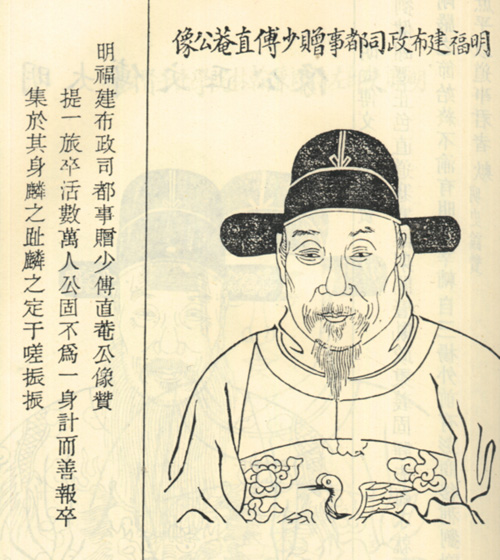 明福建布政司都事贈少傅直菴公像
明福建布政司都事贈少傅直菴公像贊
提一旅卒活數萬人公固不爲一身計而善報卒
集於其身麟之趾麟之定于嗟振振